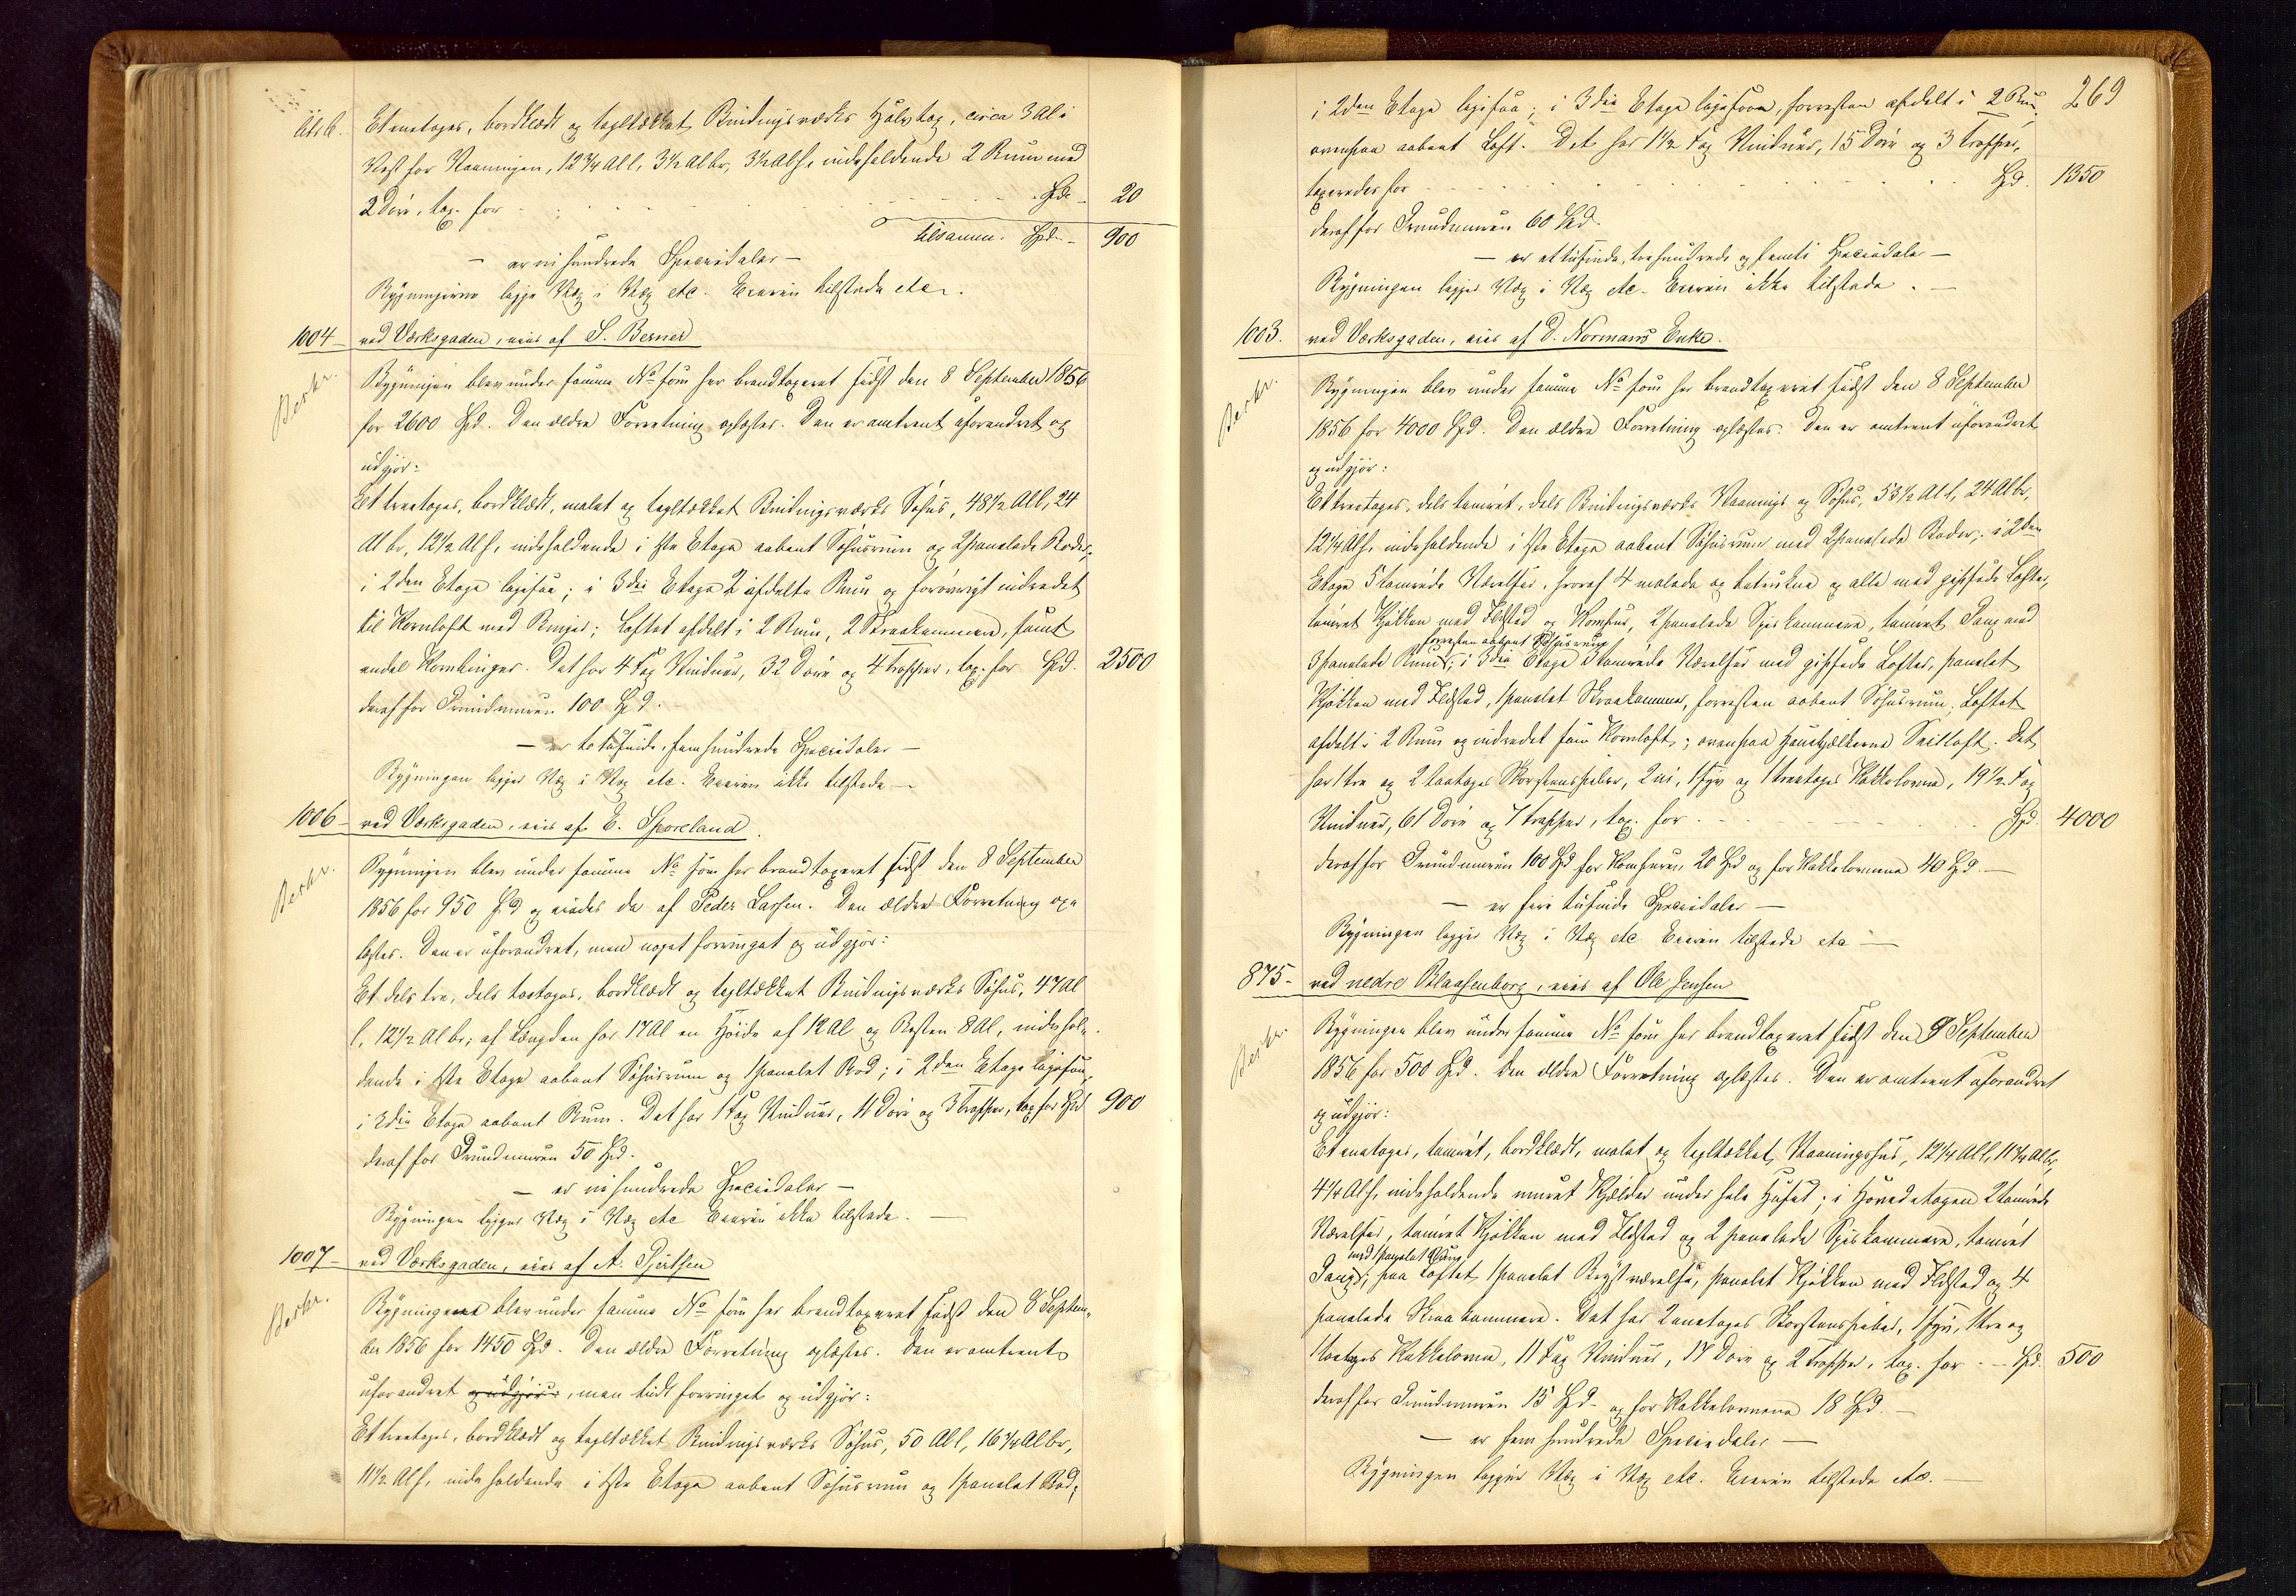 Litr b. Et enetages, bordklædt og tegltækket Bindingsværks Halvtag, circa 3 Al i
Vest for Vaaningen, 12 3/4 Al l, 3 1/2 Al br, 3 1/2 Al h, indeholdende 2 Rum med
2 Döre, tax. for Spd. 20
tilsamm. Spd. 900
— er ni hundrede Speciedaler —
Bygningerne ligge Væg i Væg etc. Eieren tilstede etc.
1004 ved Værksgaden, eies af S. Berner
Berkr.
Bygningen blev under samme No som her brandtaxeret sidst den 8 September 1856
for 2600 Spd. Den ældre Forretning oplæstes. Den er omtrent uforandret og
udgjör:
Et treetages, bordklædt, malet og tegltækket Bindingsværks Söhus, 48 1/2 Al l, 24
Al br, 12 1/2 Al h, indeholdende i 1ste Etage aabent Söhusrum og 2 panelede Boder,
i 2den Etage ligesaa; i 3die Etage 2 afdelte Rum og forövrigt indredet
til Kornloft med Binger; Loftet afdelt i 2 Rum, 2 Skraakammere, samt
endel Kornbinger. Det har 4 Fag Vinduer, 32 Döre og 4 Trapper, tax. for Spd. 2500
deraf for Grundmuren 100 Spd.
— er to tusinde, fem hundrede Speciedaler —
Bygningen ligger Væg i Væg etc. Eieren ikke tilstede —
1006 ved Værksgaden, eies af E. Sporeland
Berkr.
Bygningen blev under samme No som her brandtaxeret sidst den 8 September
1856 for 950 Spd og eiedes da af Peder Larsen. Den ældre Forretning op-
læstes. Den er uforandret, men noget forringet og udgjör:
Et dels tre, dels toetages, bordklædt og tegltækket Bindingsværks Söhus, 47 Al
l, 12 1/2 Al br; af Længden har 17 Al en Höide af 12 Al og Resten 8 Al, indehol-
dende i 1ste Etage aabent Söhusrum og 1 panelet Bod; i 2den Etage ligesaa,
i 3die Etage aabent Rum. Det har 1 Fag Vinduer, 11 Döre og 3 Trapper, tax for Spd 900
deraf for Grundmuren 50 Spd.
— er ni hundrede Speciedaler —
Bygningen ligger Væg i Væg etc Eieren ikke tilstede. —
1007 ved Værksgaden, eies af A. Gjertsen
Berkr.
Bygningene blev under samme No som her brandtaxeret sidst den 8 Septem-
ber 1856 for 1450 Spd. Den ældre Forretning oplæstes. Den er omtrent
uforandret og udgjör:, men lidt forringet og udgjör:
Et treetages, bordklædt og tegltækket Bindingsværks Söhus, 50 Al l, 16 3/4 Al br,
11 1/2 Al h, indeholdende i 1ste Etage aabent Söhusrum og 1 panelet Bod;
269
i 2den Etage ligesaa; i 3die Etage ligesom, forresten afdelt i 2 Rum
ovenpaa aabent Loft. Det har 1 1/2 Fag Vinduer, 15 Döre og 3 Trapper,
taxeredes for Spd. 1350
deraf for Grundmuren 60 Spd.
— er et tusinde, tre hundrede og femti Speciedaler —
Bygningen ligger Væg i Væg etc. Eieren ikke tilstede. —
1003. ved Værksgaden, eies af D. Normans Enke.
Berkr.
Bygningen blev under samme No som her brandtaxeret sidst den 8 September
1856 for 4000 Spd. Den ældre Forretning oplæstes. Den er omtrent uforandret
og udgjör:
Et treetages, dels tömret, dels Bindingsværks Vaanings og Söhus, 53 1/2 Al l, 24 Al br,
12 1/4 Al h, indeholdende i 1ste Etage aabent Söhusrum med 2 panelede Boder, i 2den
Etage 5 tömrede Værelser, hvoraf 4 malede og betrukne og alle med gipsede Lofter,
tömret Kjökken med Ildsted og Komfur, 2 panelede Spiskammere, tömret Gang med
forresten aabent Söhusrum
3 panelede Rum; i 3die Etage 3 tömrede Værelser med gipsede Lofter, panelet
Kjökken med Ildsted, 1 panelet Skraakammer, forresten aabent Söhusrum. Loftet
afdelt i 2 Rum og indredet som Kornloft; ovenpaa Hanebjælkerne Seilloft. Det
har 1 tre og 2 toetages Skorstenspiber, 2 ni, 1 fyr og 1 treetages Kakkelovne, 19 1/2 Fag
Vinduer, 61 Döre og 7 Trapper, tax. for Spd. 4000
deraf for Grundmuren 100 Spd for Komfuren 20 Spd og for Kakkelovnene 40 Spd —
— er fire tusinde Speciedaler —
Bygningen ligger Væg i Væg etc Eieren tilstede etc —
875 ved nedre Blaasenborg, eies af Ole Jensen
Berkr.
Bygningen blev under samme No som her brandtaxeret sidst den 9 September
1856 for 500 Spd. Den ældre Forretning oplæstes. Den er omtrent uforandret
og udgjör:
Et enetages, tömret, bordklædt, malet og tegltækket Vaaningshus, 12 1/4 Al l, 11 3/4 Al br,
4 1/4 Al h, indeholdende muret Kjelder under hele Huset; i Hovedetagen 2 tömrede
Værelser, tömret Kjökken med Ildsted og 2 panelede Spiskammere, tömret
med 1 panelet Rum
Gang; paa Loftet 1 panelet Kvistværelse, panelet Kjökken med Ildsted og 4
panelede Skraakammere. Det har 2 enetages Skorstenspiber, 1 fyr, 1 tre og
1 toetages Kakkelovne, 11 Fag Vinduer, 17 Döre og 2 Trapper, tax. for — Spd. 500
deraf for Grundmuren 15 Spd. og for Kakkelovnene 18 Spd. —
— er fem hundrede Speciedaler —
Bygningen ligger Væg i Væg etc. Eieren tilstede etc. —